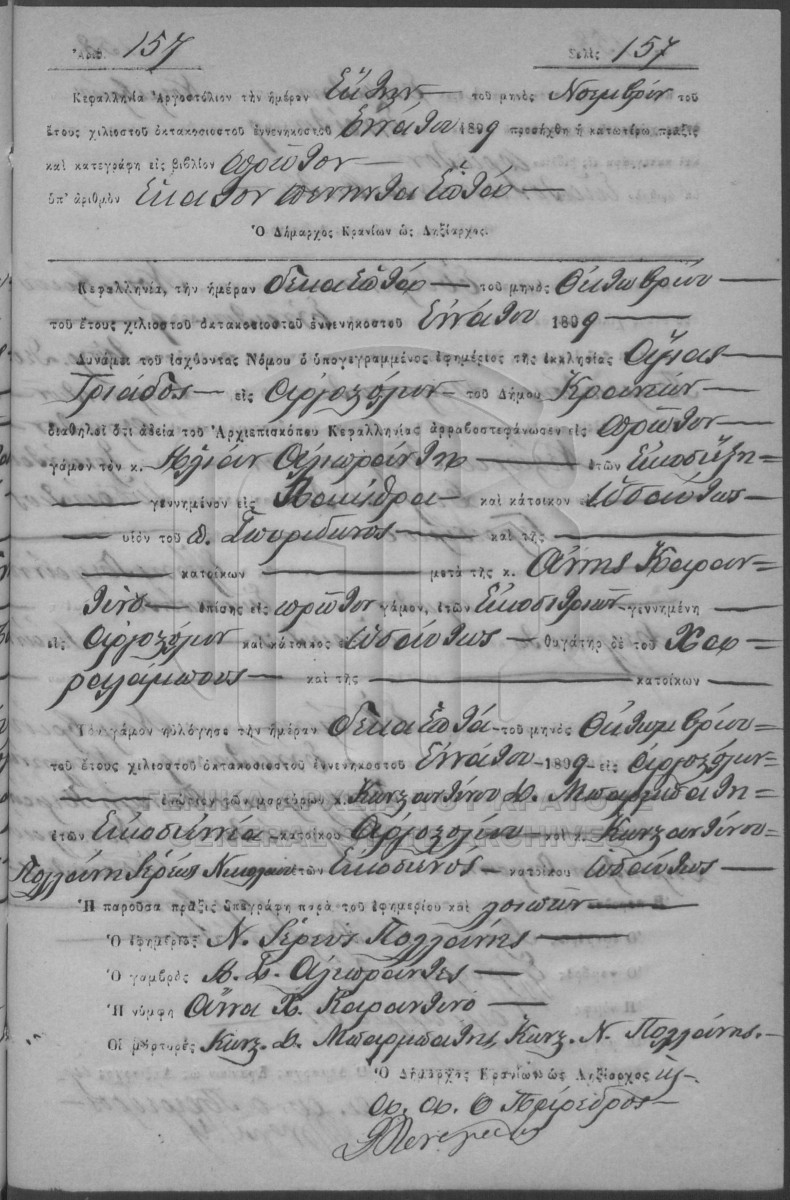 Ἀριθ. 157 Σελὶς 157
Κεφαλληνία Ἀργοστόλιον τὴν ἡμέραν Ἕκτην τοῦ μηνὸς Νοεμβρίου τοῦ
ἔτους χιλιοστοῦ ὀκτακοσιοστοῦ ἐννενηκοστοῦ Ἐννάτου 1899 προσήχθη ἡ κατωτέρω πρᾶξις
καὶ κατεγράφη εἰς βιβλίον πρῶτον
ὑπ' ἀριθμὸν Ἑκατὸν πενῆντα ἑπτά
Ὁ Δήμαρχος Κρανίων ὡς Ληξίαρχος.
Κεφαλληνία, τὴν ἡμέραν δεκαεπτά τοῦ μηνὸς Ὀκτωβρίου
τοῦ ἔτους χιλιοστοῦ ὀκτακοσιοστοῦ ἐννενηκοστοῦ Ἐννάτου 1899
Δυνάμει τοῦ ἰσχύοντος Νόμου ὁ ὑπογεγραμμένος ἐφημέριος τῆς ἐκκλησίας Ἁγίας
Τριάδος εἰς Ἀργοστόλιον τοῦ Δήμου Κρανίων
διαδηλοῖ ὅτι ἀδείᾳ τοῦ Ἀρχιεπισκόπου Κεφαλληνίας ἀρραβοστεφάνωσεν εἰς πρῶτον
γάμον τὸν κ. Ἠλίαν Ἀλιπράντην ἐτῶν Εἰκοσιέξη=
γεννημένον εἰς καὶ κάτοικον ὡσαύτως
υἱὸν τοῦ Σπυρίδωνος καὶ τῆς
κατοίκων μετὰ τῆς κ. Ἄννης Καραν=
τινὸ ἐπίσης εἰς πρῶτον γάμον, ἐτῶν Εἰκοσιτριῶν γεννημένη
εἰς Ἀργοστόλιον καὶ κάτοικος ὡσαύτως θυγάτηρ δὲ τοῦ Χαρ=
ραλάμπους καὶ τῆς κατοίκων
Τὸν γάμον ηὐλόγησε τὴν ἡμέραν δεκαεπτά τοῦ μηνὸς Ὀκτωμβρίου=
τοῦ ἔτους χιλιοστοῦ ὀκτακοσιοστοῦ ἐννενηκοστοῦ Ἐννάτου 1899 εἰς Ἀργοστόλιον=
ἐνώπιον τῶν μαρτύρων κ. Κωνσταντίνου Δ. Μπαρμπάτη=
ἐτῶν Εἰκοσιεννέα κατοίκου Ἀργοστολίου καὶ κ. Κωνσταντίνου
Πολλάνη Ἱερέως Νικολάου ἐτῶν Εἰκοσιενὸς κατοίκου ὡσαύτως
Ἡ παροῦσα πρᾶξις ὑπεγράφη παρὰ τοῦ ἐφημερίου καὶ λοιπῶν
Ὁ ἐφημέριος Ν. Ἱερεὺς Πολλάνης
Ὁ γαμβρὸς Η. Σ. Ἀλιπράντες
Ἡ νύμφη Ἄννα Χ. Καραντινό
Οἱ μάρτυρες Κωνσ. Δ. Μπαρμπάτης, Κωνσ. Ν. Πολλάνης.
Ὁ Δήμαρχος Κρανίων ὡς Ληξίαρχος
Ὁ Πρόεδρος
GENERAL STATE ARCHIVES